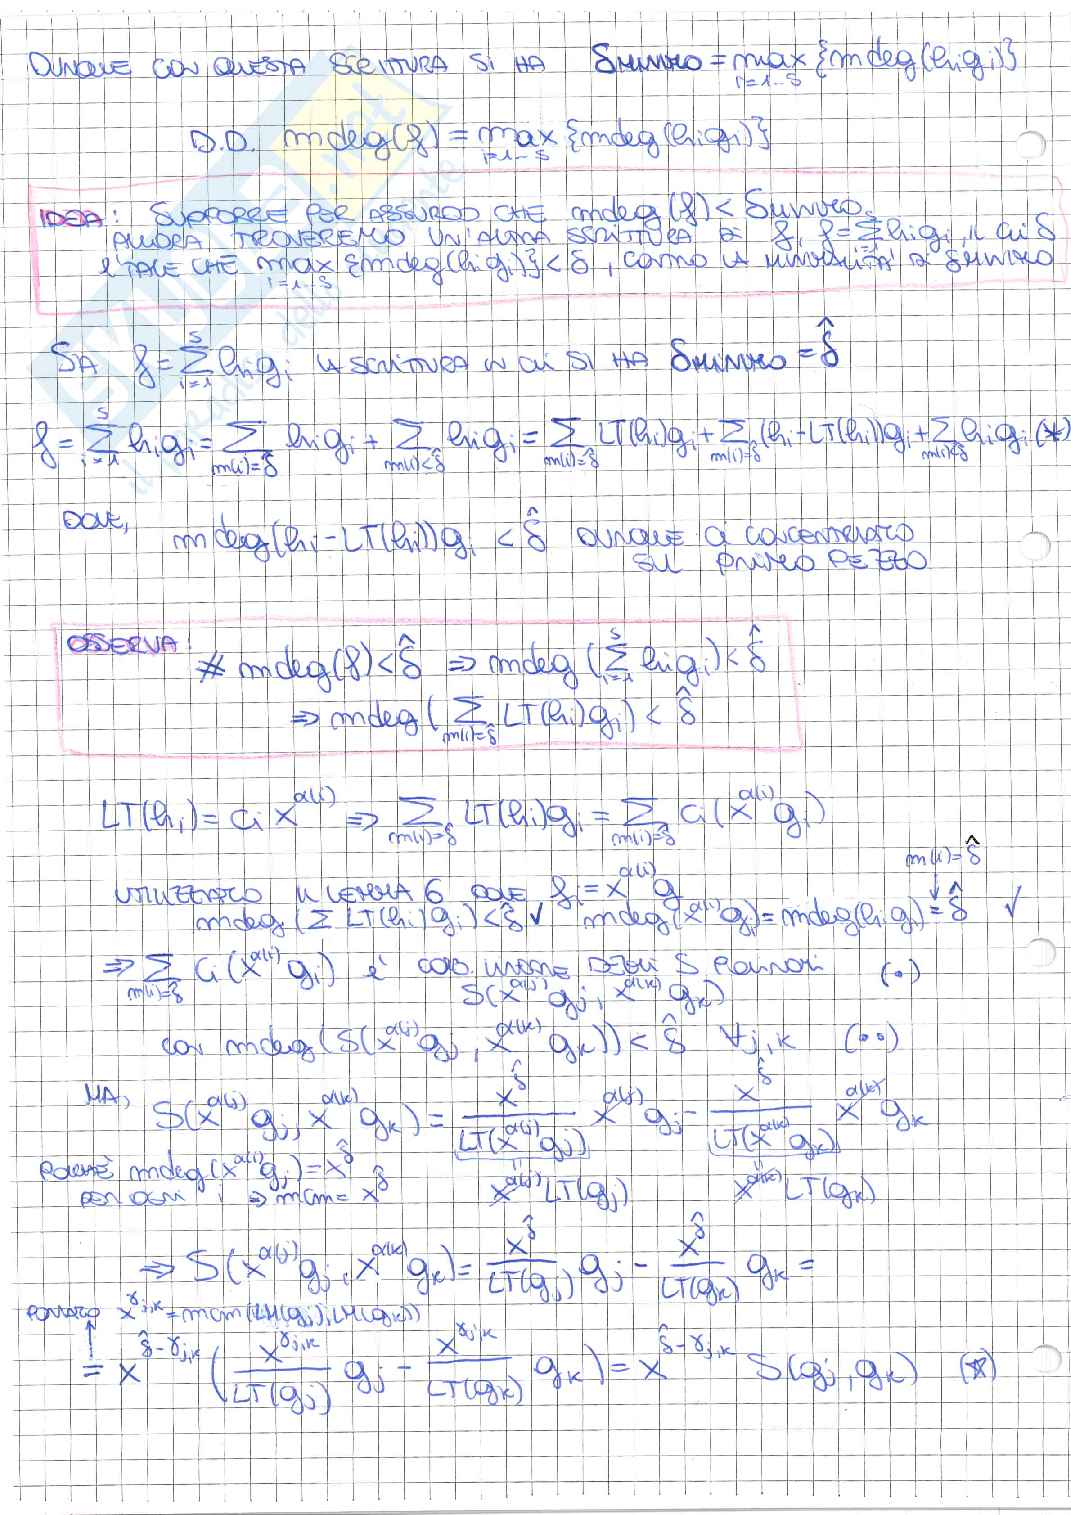 DUNQUE CON QUESTA SCRITTURA SI HA δMINIMO = max_{i=1...s} {mdeg(hᵢgᵢ)}
D.D. mdeg(f) = max_{i=1...s} {mdeg(hᵢgᵢ)}
IDEA: SUPPORRE PER ASSURDO CHE mdeg(f) < δMINIMO.
ALLORA TROVEREMO UN'ALTRA SCRITTURA DI f, f = Σ_{i=1}^{s} hᵢgᵢ, IL CUI δ
È TALE CHE max_{i=1...s} {mdeg(hᵢgᵢ)} < δ, CONTRO LA MINIMALITÀ DI δMINIMO
SIA f = Σ_{i=1}^{s} hᵢgᵢ LA SCRITTURA IN CUI SI HA δMINIMO = δ̂
f = Σ_{i=1}^{s} hᵢgᵢ = Σ_{m(i)=δ̂} hᵢgᵢ + Σ_{m(i)<δ̂} hᵢgᵢ = Σ_{m(i)=δ̂} LT(hᵢ)gᵢ + Σ_{m(i)=δ̂} (hᵢ-LT(hᵢ))gᵢ + Σ_{m(i)<δ̂} hᵢgᵢ (*)
DOVE, mdeg(hᵢ-LT(hᵢ))gᵢ < δ̂ DUNQUE CI CONCENTRIAMO
SUL PRIMO PEZZO
OSSERVA:
# mdeg(f) < δ̂ ⇒ mdeg(Σ_{i=1}^{s} hᵢgᵢ) < δ̂
⇒ mdeg(Σ_{m(i)=δ̂} LT(hᵢ)gᵢ) < δ̂
LT(hᵢ) = cᵢ x^{α(i)} ⇒ Σ_{m(i)=δ̂} LT(hᵢ)gᵢ = Σ_{m(i)=δ̂} cᵢ(x^{α(i)} gᵢ)
m(i)=δ̂
UTILIZZIAMO IL LEMMA 6 DOVE fᵢ = x^{α(i)} gᵢ
mdeg(Σ LT(hᵢ)gᵢ) < δ̂ ✓ mdeg(x^{α(i)} gᵢ) = mdeg(hᵢgᵢ) = δ̂ ✓
⇒ Σ_{m(i)=δ̂} cᵢ(x^{α(i)} gᵢ) È COMB. LINEARE DEGLI S POLINOMI (•)
S(x^{α(j)} gⱼ, x^{α(k)} gₖ)
CON mdeg(S(x^{α(j)} gⱼ, x^{α(k)} gₖ)) < δ̂ ∀j,k (••)
MA, S(x^{α(j)} gⱼ, x^{α(k)} gₖ) = x^δ̂ / LT(x^{α(j)} gⱼ) x^{α(j)} gⱼ - x^δ̂ / LT(x^{α(k)} gₖ) x^{α(k)} gₖ
POICHÈ mdeg(x^{α(i)} gᵢ) = x^δ̂
PER OGNI i ⇒ mcm = x^δ̂
x^{α(j)} LT(gⱼ) x^{α(k)} LT(gₖ)
⇒ S(x^{α(j)} gⱼ, x^{α(k)} gₖ) = x^δ̂ / LT(gⱼ) gⱼ - x^δ̂ / LT(gₖ) gₖ =
PONIAMO x^{γj,k} = mcm(LM(gⱼ), LM(gₖ))
= x^{δ̂-γj,k} (x^{γj,k} / LT(gⱼ) gⱼ - x^{γj,k} / LT(gₖ) gₖ) = x^{δ̂-γj,k} S(gⱼ, gₖ) (☆)